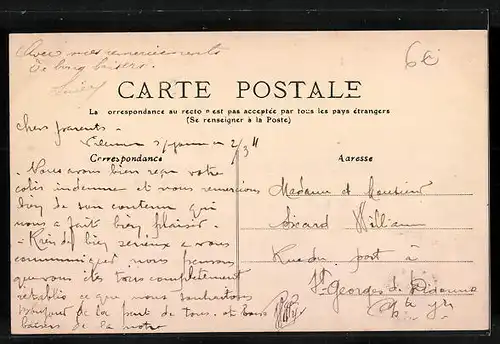 Avec mes remerciements
et bons baisers.
6€
CARTE POSTALE
La correspondance au recto n'est pas acceptée par tous les pays étrangers
(Se renseigner à la Poste)
Chers parents.
2/3 11
Correspondance
Adresse
Nous avons bien reçu votre
colis indemne et nous remercions
bien de son contenu qui
nous a fait bien plaisir.
Rien de bien sérieux a vous
communiquer nous pensons
que vous êtes tous complètement
rétablis ce que nous souhaitons
de la part de tous. et bons
baisers de la notre
Madame et Monsieur
Sicard William
Rue du port à
St Georges de Didonne